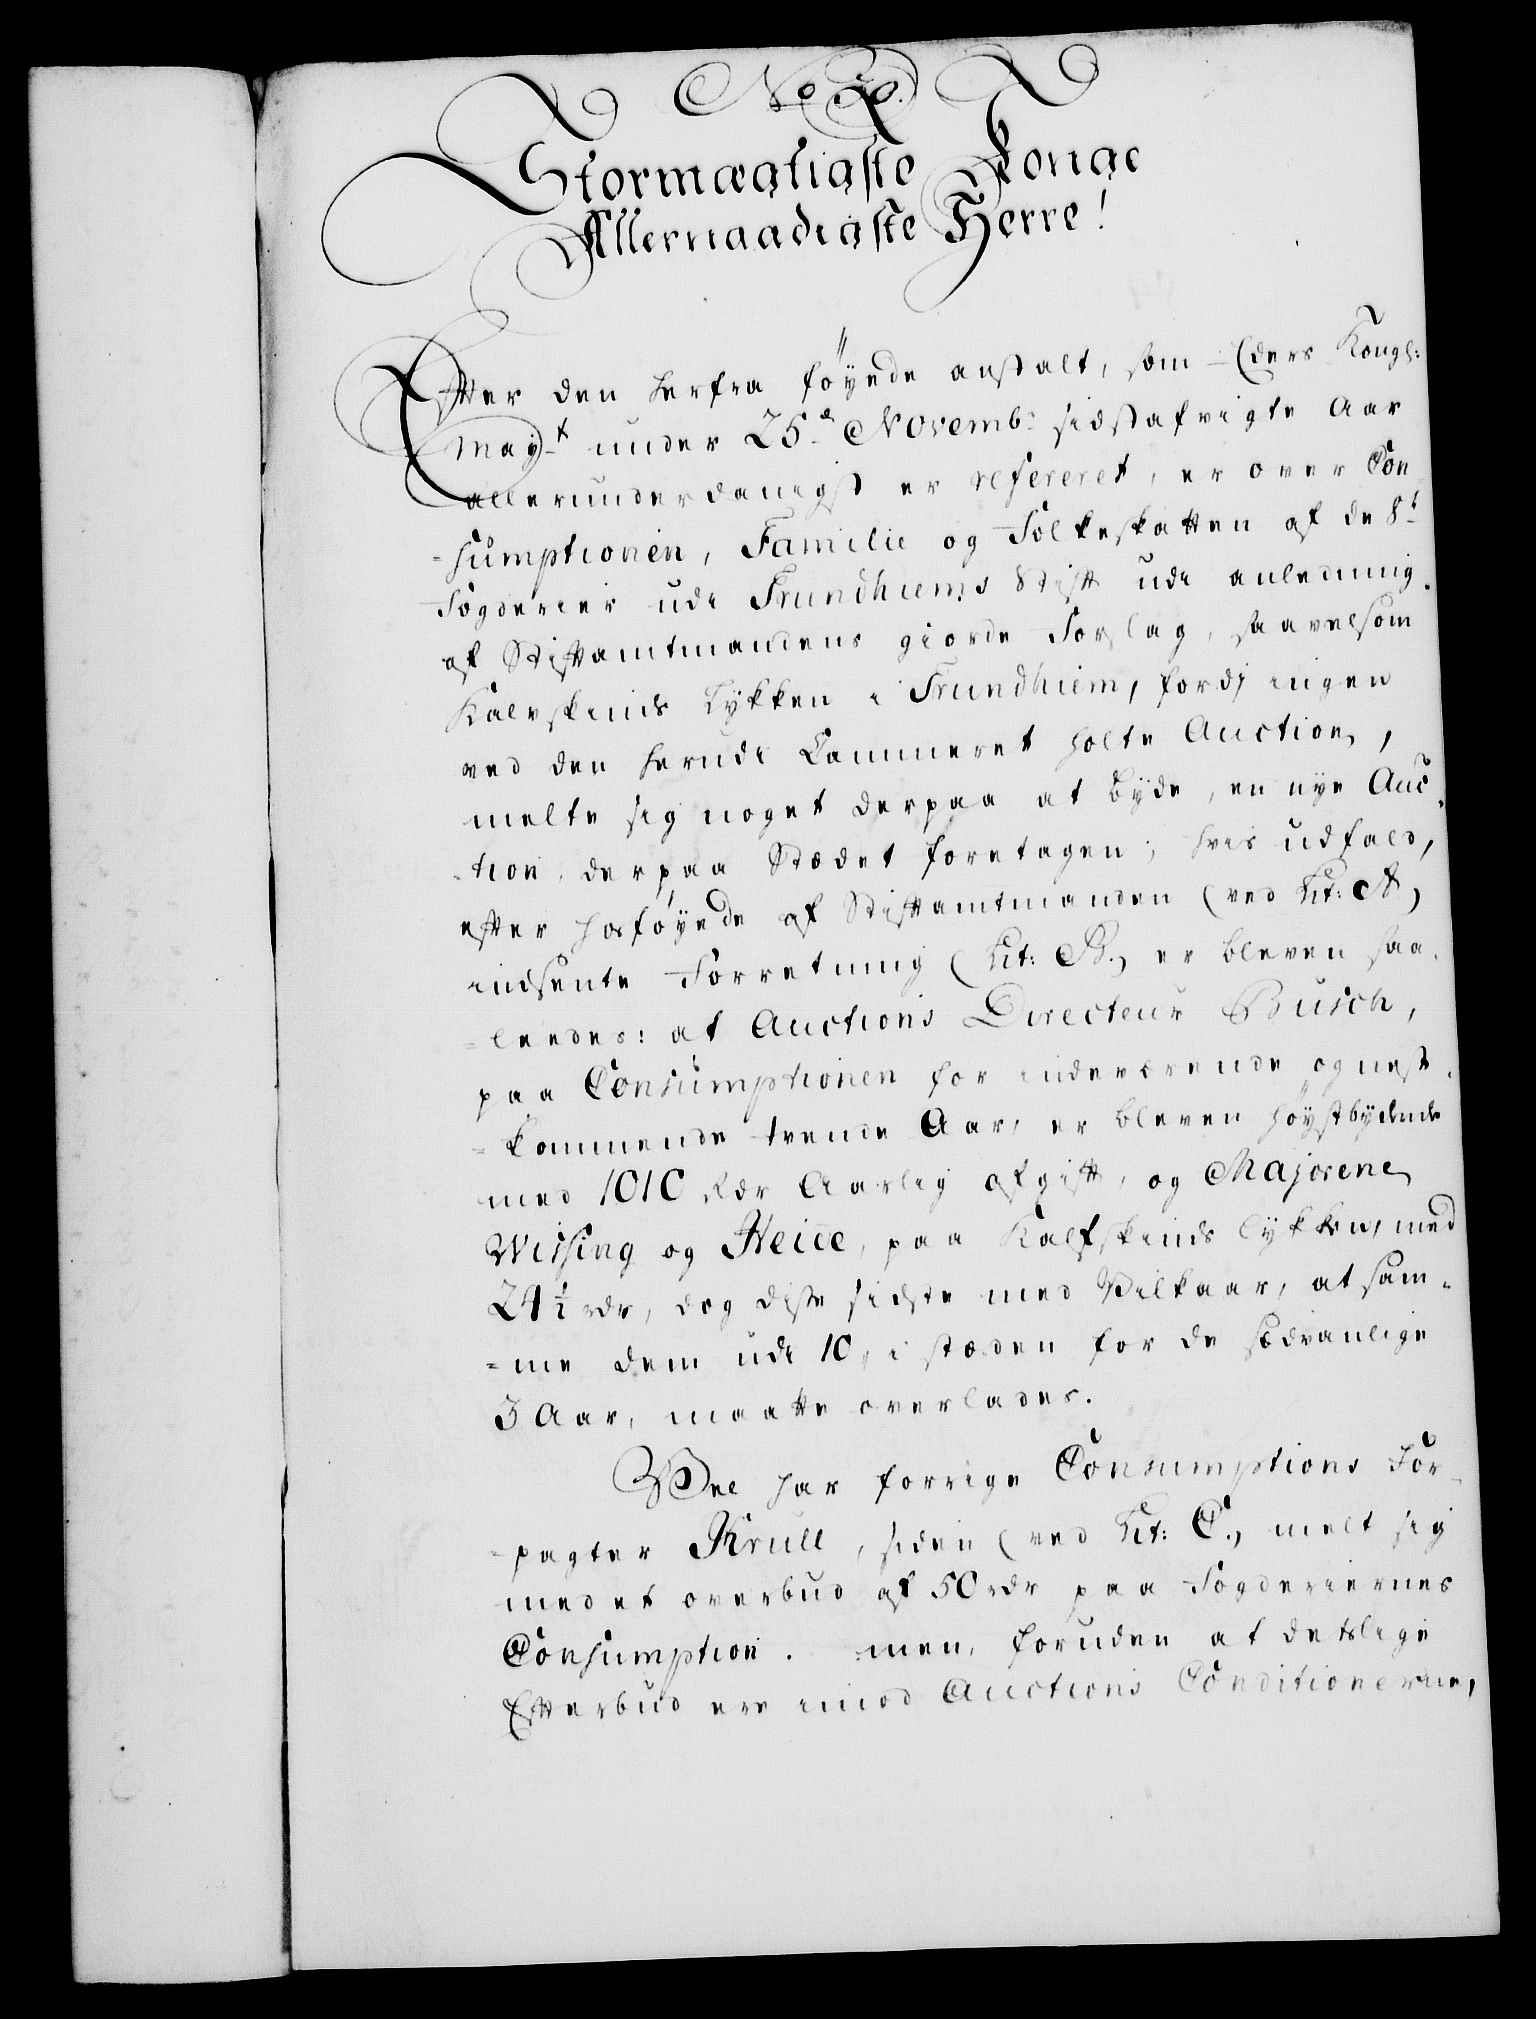 No 20.
Stormægtigste Konge
Allernaadigste Herre!
Efter den herfra føyede anstalt, som Eders Kongl:
May.t under 25.de Novemb: sidstafvigte Aar
allerunderdanigst er refereret, er over Con
=sumptionen, Familie og Folkeskatten af de 8.te
Fogderier udi Trundhiems Stift udi anledning
af Stiftamtmandens giorde Forslag, saavelsom
Kalvskinds Lykken i Trundhiem, fordj ingen
ved den herudi Cammeret holte Auction,
melte sig noget derpaa at byde, en nye Auc
-tion, derpaa Stædet foretagen; hvis udfald,
efter hosføyede af Stiftamtmanden (ved Lit: A)
indsente Forretning (Lit: B.) er bleven saa
=leedes: at Auctions Directeur Busch,
paa Consumptionen for indeværende og nest
=kommende trende Aar, er bleven høystbydende
med 1010 rdr Aarlig afgift, og Majorene
Wissing og Heice, paa Kalfskinds lykken, med
24½ rdr, dog disse sidste med Vilkaar, at sam=
=me dem udi 10, i stæden for de sædvanlige
3 Aar, maatte overlades.
Vel har forrige Consumptions For
=pagter Krull, siden (ved Lit: C.) melt sig
med et overbud af 50 rdr paa Fogderiernes
Consumption. men, foruden at detslige
Efterbud ere imod Auctions Conditionerne,